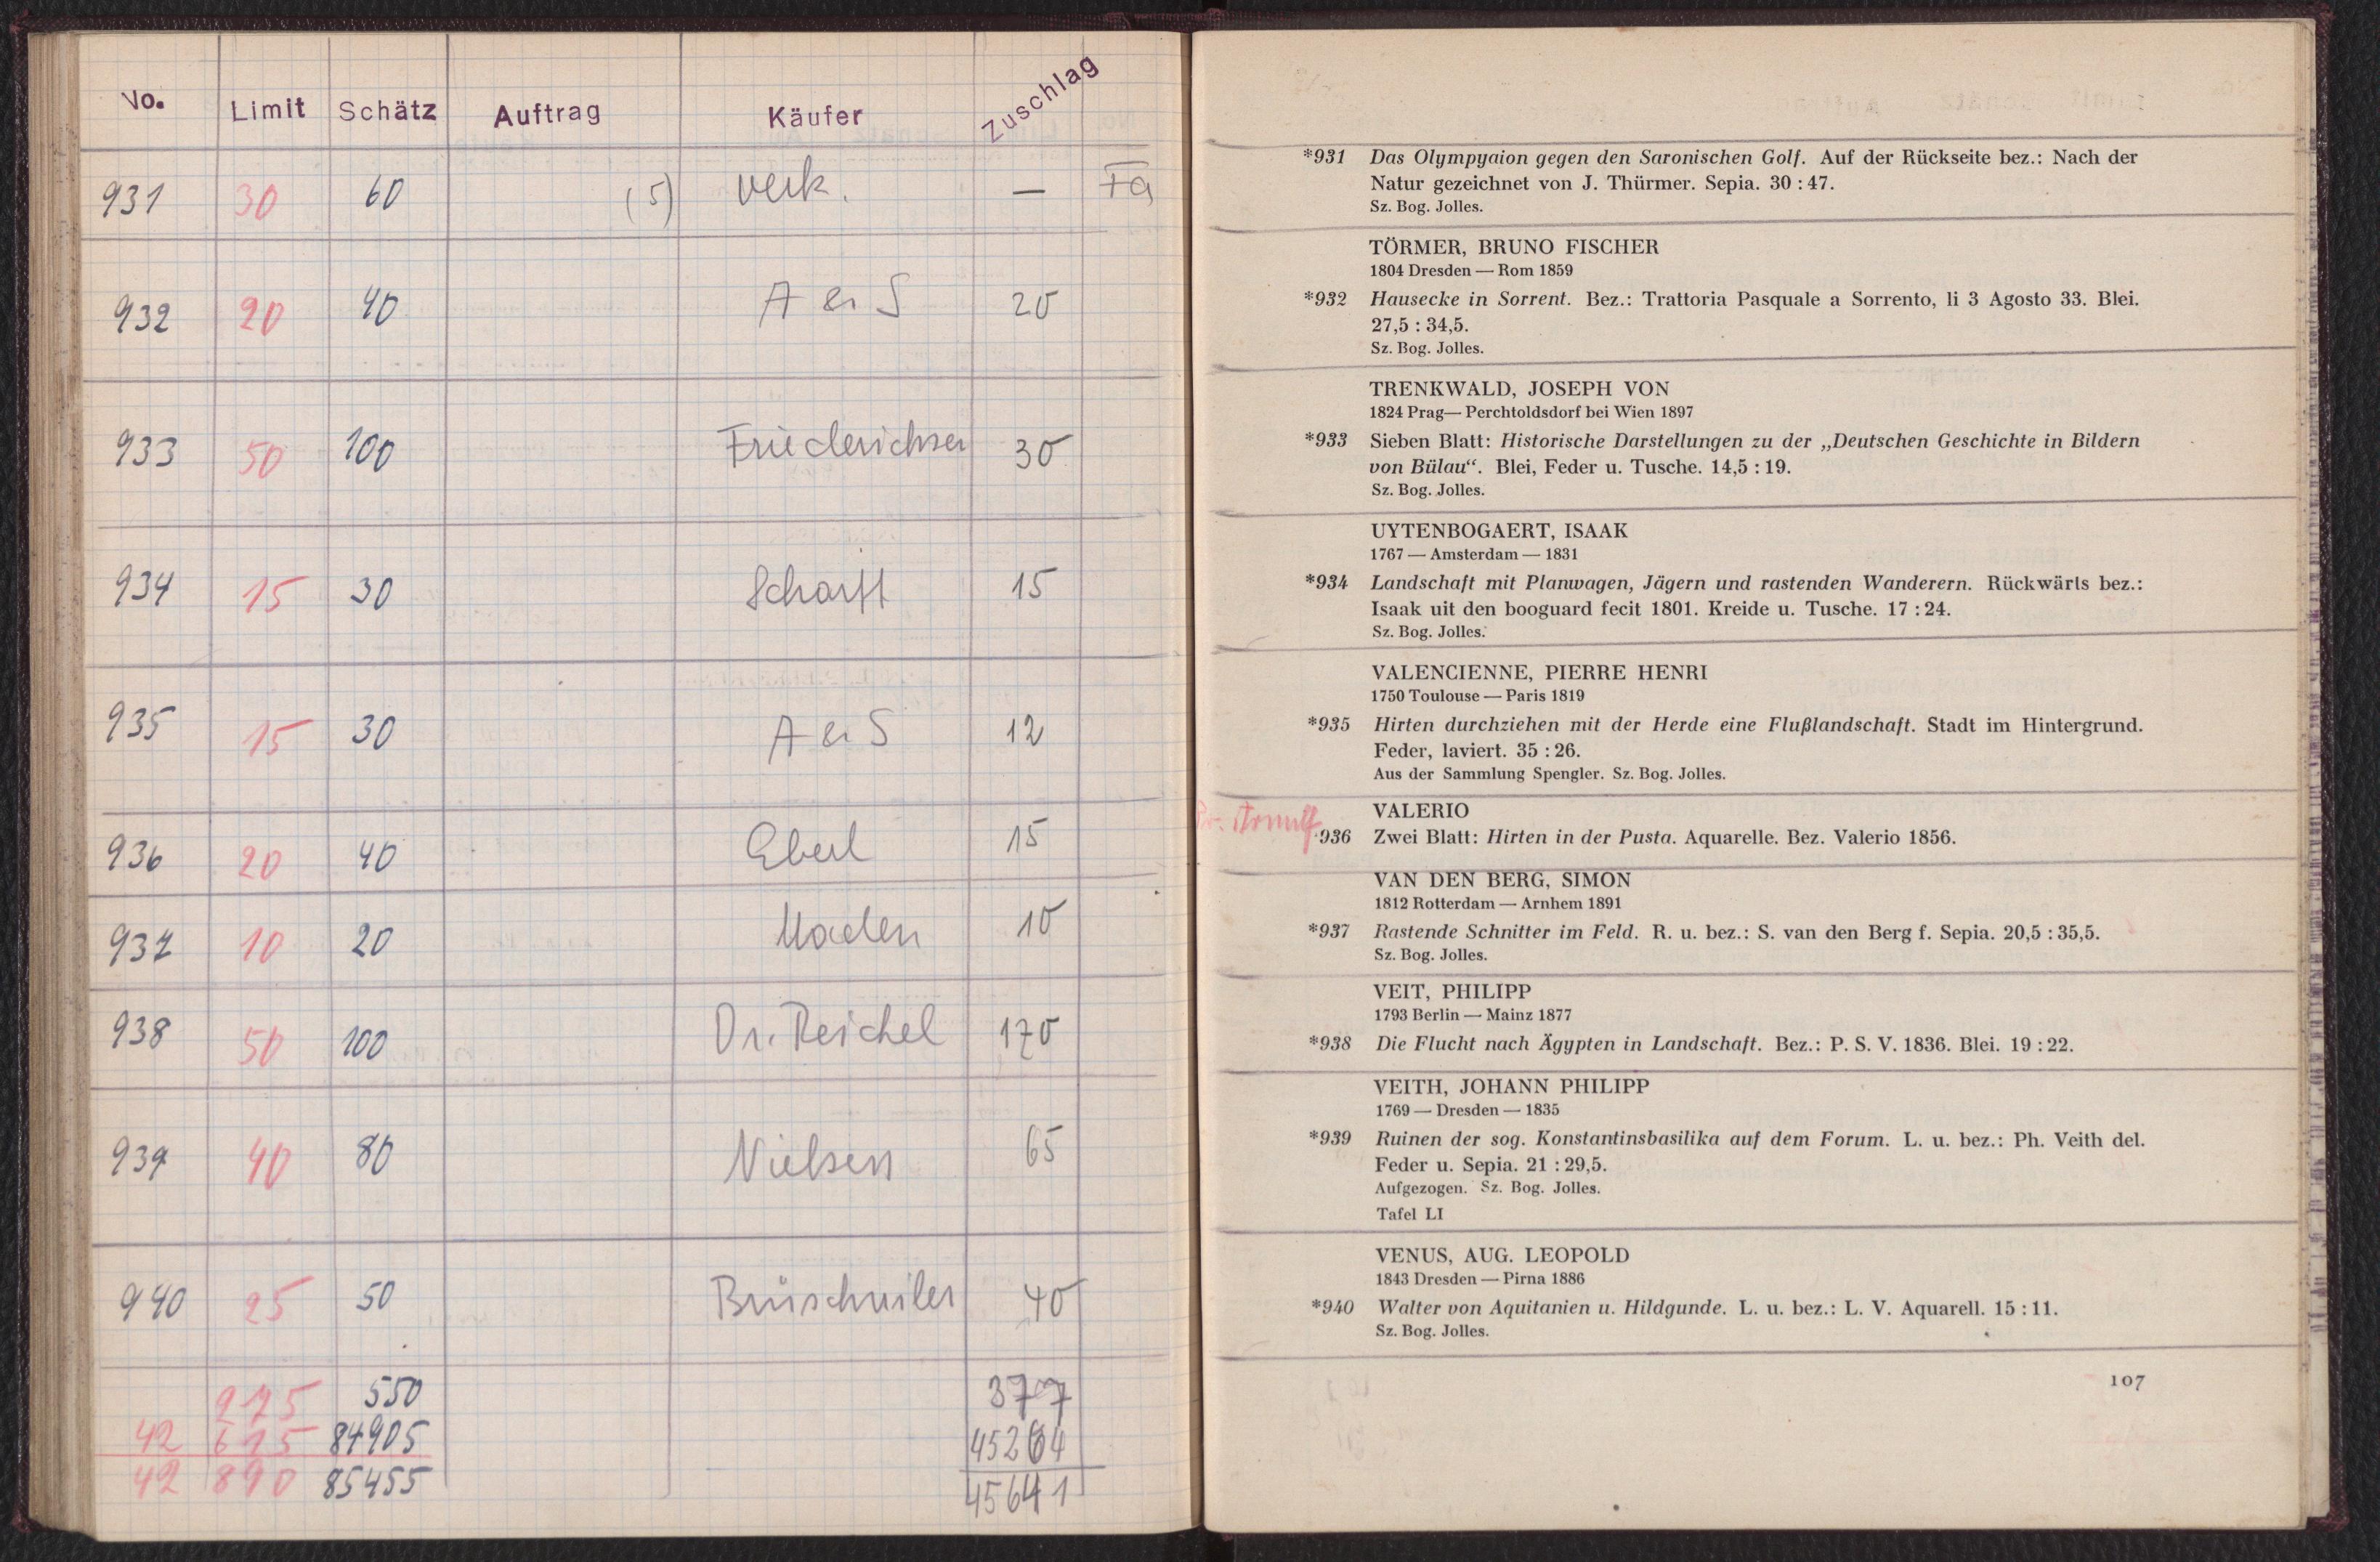 No. Limit Schätz Auftrag Käufer Zuschlag
931 30 60 (5) verk. —
932 20 40 A & S 20
933 50 100 Friederichsen 30
934 15 30 Scharff 15
935 15 30 A & S 12
936 20 40 Eberl 15
937 10 20 10
938 50 100 Dr. Reichel 170
939 40 80 Nielsen 65
940 25 50 Brüschwiler 40
275 550 377
42 615 84905 45264
42 890 85455 45641
*931 Das Olympyaion gegen den Saronischen Golf. Auf der Rückseite bez.: Nach der
Natur gezeichnet von J. Thürmer. Sepia. 30 : 47.
Sz. Bog. Jolles.
TÖRMER, BRUNO FISCHER
1804 Dresden — Rom 1859
*932 Hausecke in Sorrent. Bez.: Trattoria Pasquale a Sorrento, li 3 Agosto 33. Blei.
27,5 : 34,5.
Sz. Bog. Jolles.
TRENKWALD, JOSEPH VON
1824 Prag— Perchtoldsdorf bei Wien 1897
*933 Sieben Blatt: Historische Darstellungen zu der „Deutschen Geschichte in Bildern
von Bülau“. Blei, Feder u. Tusche. 14,5 : 19.
Sz. Bog. Jolles.
UYTENBOGAERT, ISAAK
1767 — Amsterdam — 1831
*934 Landschaft mit Planwagen, Jägern und rastenden Wanderern. Rückwärts bez.:
Isaak uit den booguard fecit 1801. Kreide u. Tusche. 17 : 24.
Sz. Bog. Jolles.
VALENCIENNE, PIERRE HENRI
1750 Toulouse — Paris 1819
*935 Hirten durchziehen mit der Herde eine Flußlandschaft. Stadt im Hintergrund.
Feder, laviert. 35 : 26.
Aus der Sammlung Spengler. Sz. Bog. Jolles.
VALERIO
936 Zwei Blatt: Hirten in der Pusta. Aquarelle. Bez. Valerio 1856.
VAN DEN BERG, SIMON
1812 Rotterdam — Arnhem 1891
*937 Rastende Schnitter im Feld. R. u. bez.: S. van den Berg f. Sepia. 20,5 : 35,5.
Sz. Bog. Jolles.
VEIT, PHILIPP
1793 Berlin — Mainz 1877
*938 Die Flucht nach Ägypten in Landschaft. Bez.: P. S. V. 1836. Blei. 19 : 22.
VEITH, JOHANN PHILIPP
1769 — Dresden — 1835
*939 Ruinen der sog. Konstantinsbasilika auf dem Forum. L. u. bez.: Ph. Veith del.
Feder u. Sepia. 21 : 29,5.
Aufgezogen. Sz. Bog. Jolles.
Tafel LI
VENUS, AUG. LEOPOLD
1843 Dresden — Pirna 1886
*940 Walter von Aquitanien u. Hildgunde. L. u. bez.: L. V. Aquarell. 15 : 11.
Sz. Bog. Jolles.
107